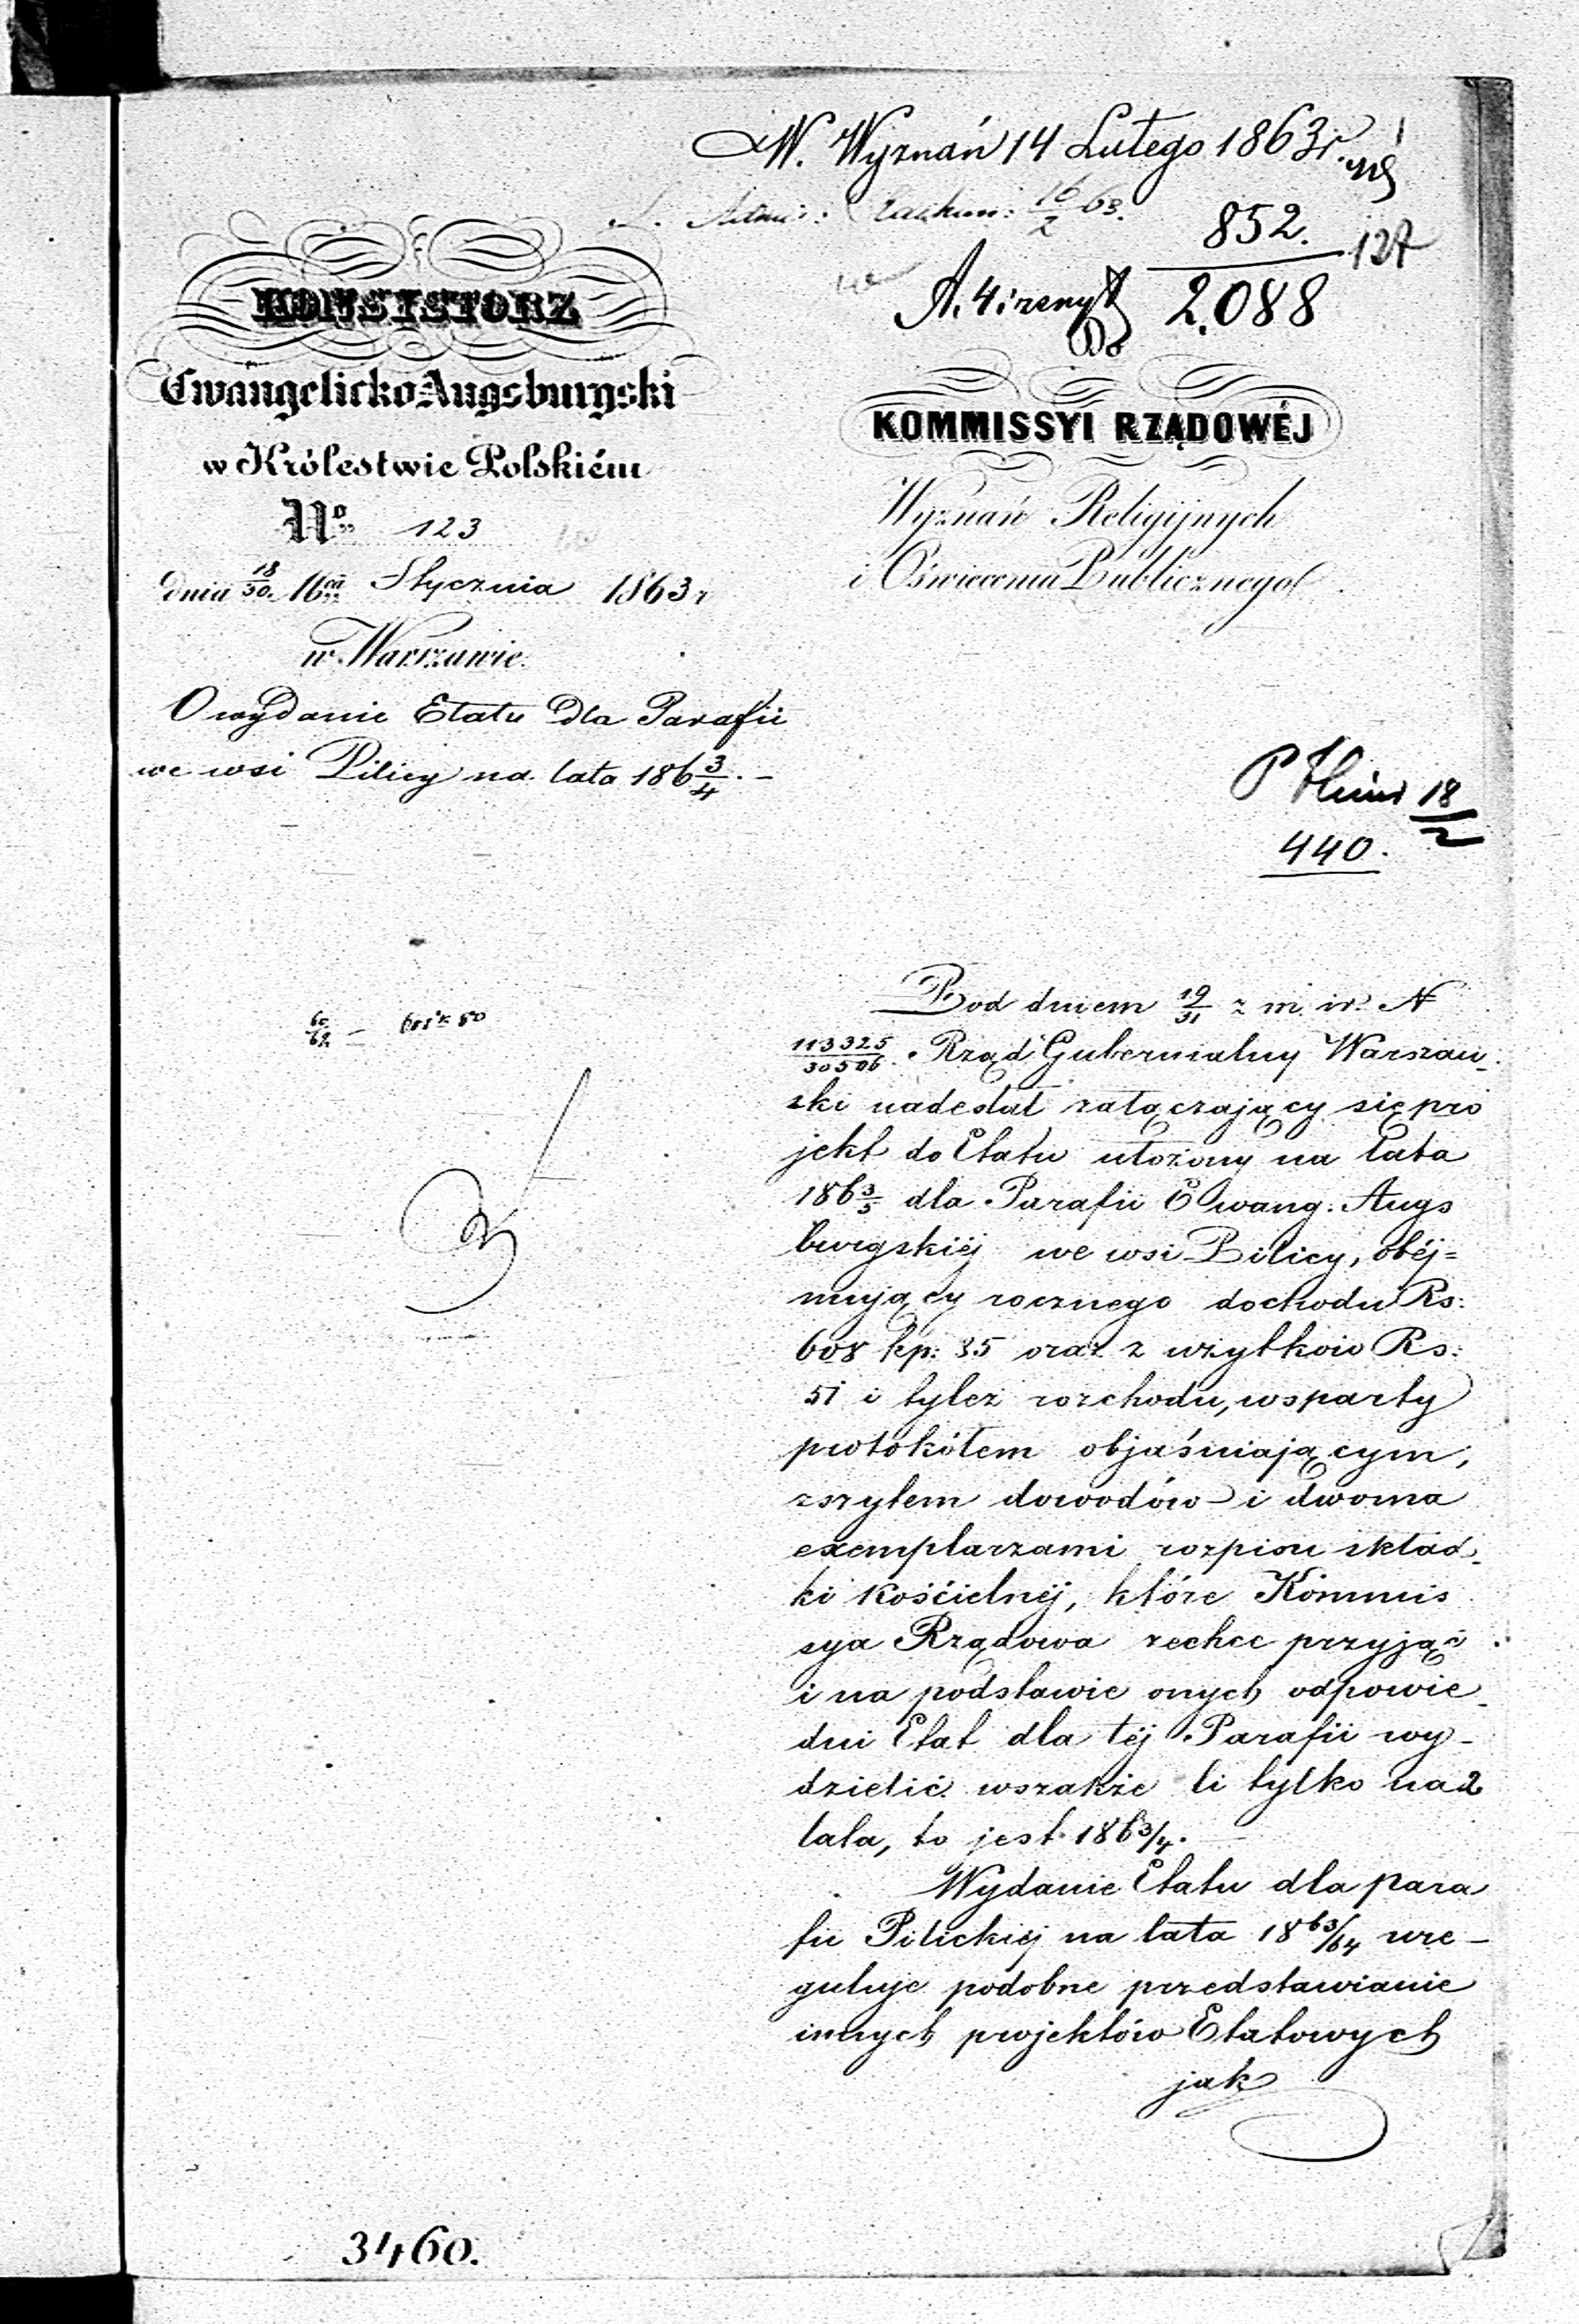 W. Wyznań 14 Lutego 1863 r.
16/2 63.
852.
127
2.088
A. 4
Do
KONSYSTORZ
Ewangelicko Augsburgski
w Królestwie Polskiém
No 123
dnia 18/30 Mca Stycznia 1863 r
w Warszawie.
O wydanie Etatu Dla Parafii
we wsi Pilicy na lata 186 3/4. –
KOMMISSYI RZĄDOWÉJ
Wyznań Religijnych
i Oświecenia Publicznego
P 18/2
440.
Pod dniem 19/31 z m. i r. N
113325/30506. Rząd Gubernialny Warszaw-
ski nadesłał załączający się pro
jekt do Etatu ułożony na lata
186 3/5 dla Parafii Ewang. Augs
burgskiéj we wsi Pilicy, obéj=
mujący rocznego dochodu Rs:
608 kp: 35 oraz z użytków Rs:
51 i tyleż rozchodu, wsparty
protokółem objaśniającym,
zszytem dowodów i dwoma
exemplarzami rozpisu skład-
ki kościelnéj, które Kommis
sya Rządowa zechce przyjąć
i na podstawie onych odpowie-
dni Etat dla téj Parafii wy-
dzielić wszakże li tylko na 2
lata, to jest 186 3/4.
Wydanie Etatu dla para
fii Pilickiéj na lata 18 63/64 ure-
guluje podobne przedstawianie
innych projektów Etatowych
jak
60/62 –
3460.